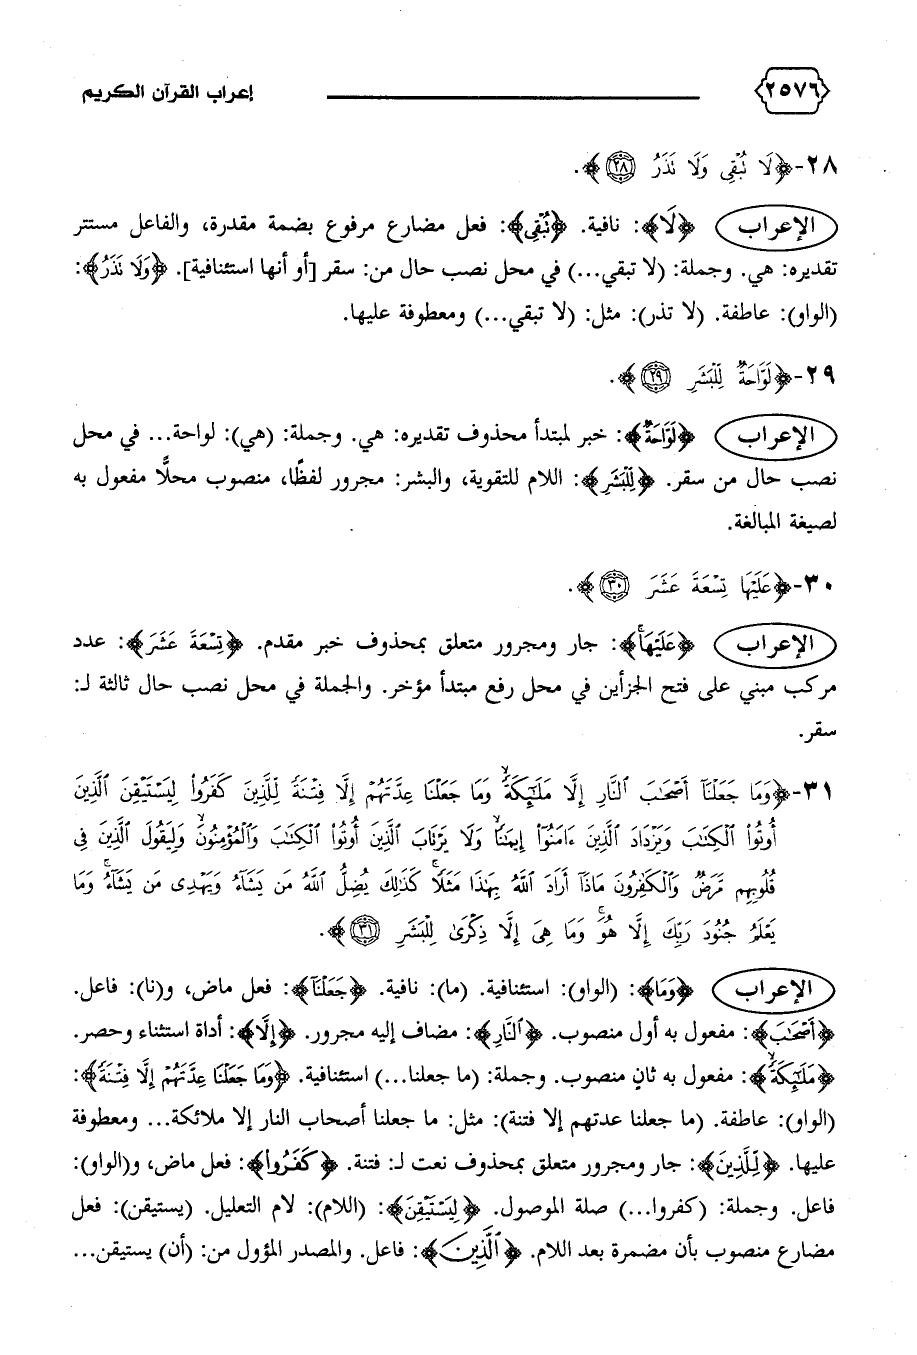 ٢٥٧٦
إعراب القرآن الكريم
٢٨-﴿لَا تُبْقِى وَلَا تَذَرُ ٢٨﴾.
الإعراب ﴿لَا﴾: نافية. ﴿تُبْقِى﴾: فعل مضارع مرفوع بضمة مقدرة، والفاعل مستتر
تقديره: هي. وجملة: (لا تبقي...) في محل نصب حال من: سقر [أو أنها استئنافية]. ﴿وَلَا تَذَرُ﴾:
(الواو): عاطفة. (لا تذر): مثل: (لا تبقي...) ومعطوفة عليها.
٢٩-﴿لَوَّاحَةٌ لِّلْبَشَرِ ٢٩﴾.
الإعراب ﴿لَوَّاحَةٌ﴾: خبر لمبتدأ محذوف تقديره: هي. وجملة: (هي): لواحة... في محل
نصب حال من سقر. ﴿لِّلْبَشَرِ﴾: اللام للتقوية، والبشر: مجرور لفظًا، منصوب محلًّا مفعول به
لصيغة المبالغة.
٣٠-﴿عَلَيْهَا تِسْعَةَ عَشَرَ ٣٠﴾.
الإعراب ﴿عَلَيْهَا﴾: جار ومجرور متعلق بمحذوف خبر مقدم. ﴿تِسْعَةَ عَشَرَ﴾: عدد
مركب مبني على فتح الجزأين في محل رفع مبتدأ مؤخر. والجملة في محل نصب حال ثالثة لـ:
سقر.
٣١-﴿وَمَا جَعَلْنَآ أَصْحَٰبَ ٱلنَّارِ إِلَّا مَلَٰٓئِكَةً ۙ وَمَا جَعَلْنَا عِدَّتَهُمْ إِلَّا فِتْنَةً لِّلَّذِينَ كَفَرُوا۟ لِيَسْتَيْقِنَ ٱلَّذِينَ
أُوتُوا۟ ٱلْكِتَٰبَ وَيَزْدَادَ ٱلَّذِينَ ءَامَنُوٓا۟ إِيمَٰنًا ۙ وَلَا يَرْتَابَ ٱلَّذِينَ أُوتُوا۟ ٱلْكِتَٰبَ وَٱلْمُؤْمِنُونَ ۙ وَلِيَقُولَ ٱلَّذِينَ فِى
قُلُوبِهِم مَّرَضٌ وَٱلْكَٰفِرُونَ مَاذَآ أَرَادَ ٱللَّهُ بِهَٰذَا مَثَلًا ۚ كَذَٰلِكَ يُضِلُّ ٱللَّهُ مَن يَشَآءُ وَيَهْدِى مَن يَشَآءُ ۚ وَمَا
يَعْلَمُ جُنُودَ رَبِّكَ إِلَّا هُوَ ۚ وَمَا هِىَ إِلَّا ذِكْرَىٰ لِلْبَشَرِ ٣١﴾.
الإعراب ﴿وَمَا﴾: (الواو): استئنافية. (ما): نافية. ﴿جَعَلْنَآ﴾: فعل ماض، و(نا): فاعل.
﴿أَصْحَٰبَ﴾: مفعول به أول منصوب. ﴿ٱلنَّارِ﴾: مضاف إليه مجرور. ﴿إِلَّا﴾: أداة استثناء وحصر.
﴿مَلَٰٓئِكَةً ۙ﴾: مفعول به ثانٍ منصوب. وجملة: (ما جعلنا...) استئنافية. ﴿وَمَا جَعَلْنَا عِدَّتَهُمْ إِلَّا فِتْنَةً﴾:
(الواو): عاطفة. (ما جعلنا عدتهم إلا فتنة): مثل: ما جعلنا أصحاب النار إلا ملائكة... ومعطوفة
عليها. ﴿لِّلَّذِينَ﴾: جار ومجرور متعلق بمحذوف نعت لـ: فتنة. ﴿كَفَرُوا۟﴾: فعل ماض، و(الواو):
فاعل. وجملة: (كفروا...) صلة الموصول. ﴿لِيَسْتَيْقِنَ﴾: (اللام): لام التعليل. (يستيقن): فعل
مضارع منصوب بأن مضمرة بعد اللام. ﴿ٱلَّذِينَ﴾: فاعل. والمصدر المؤول من: (أن) يستيقن...